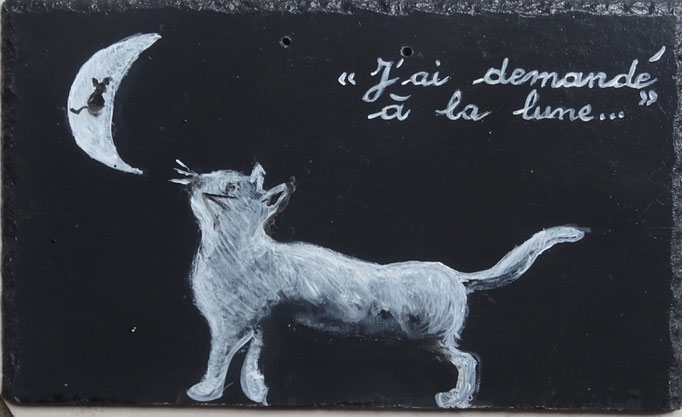 « J'ai demandé
à la lune... »